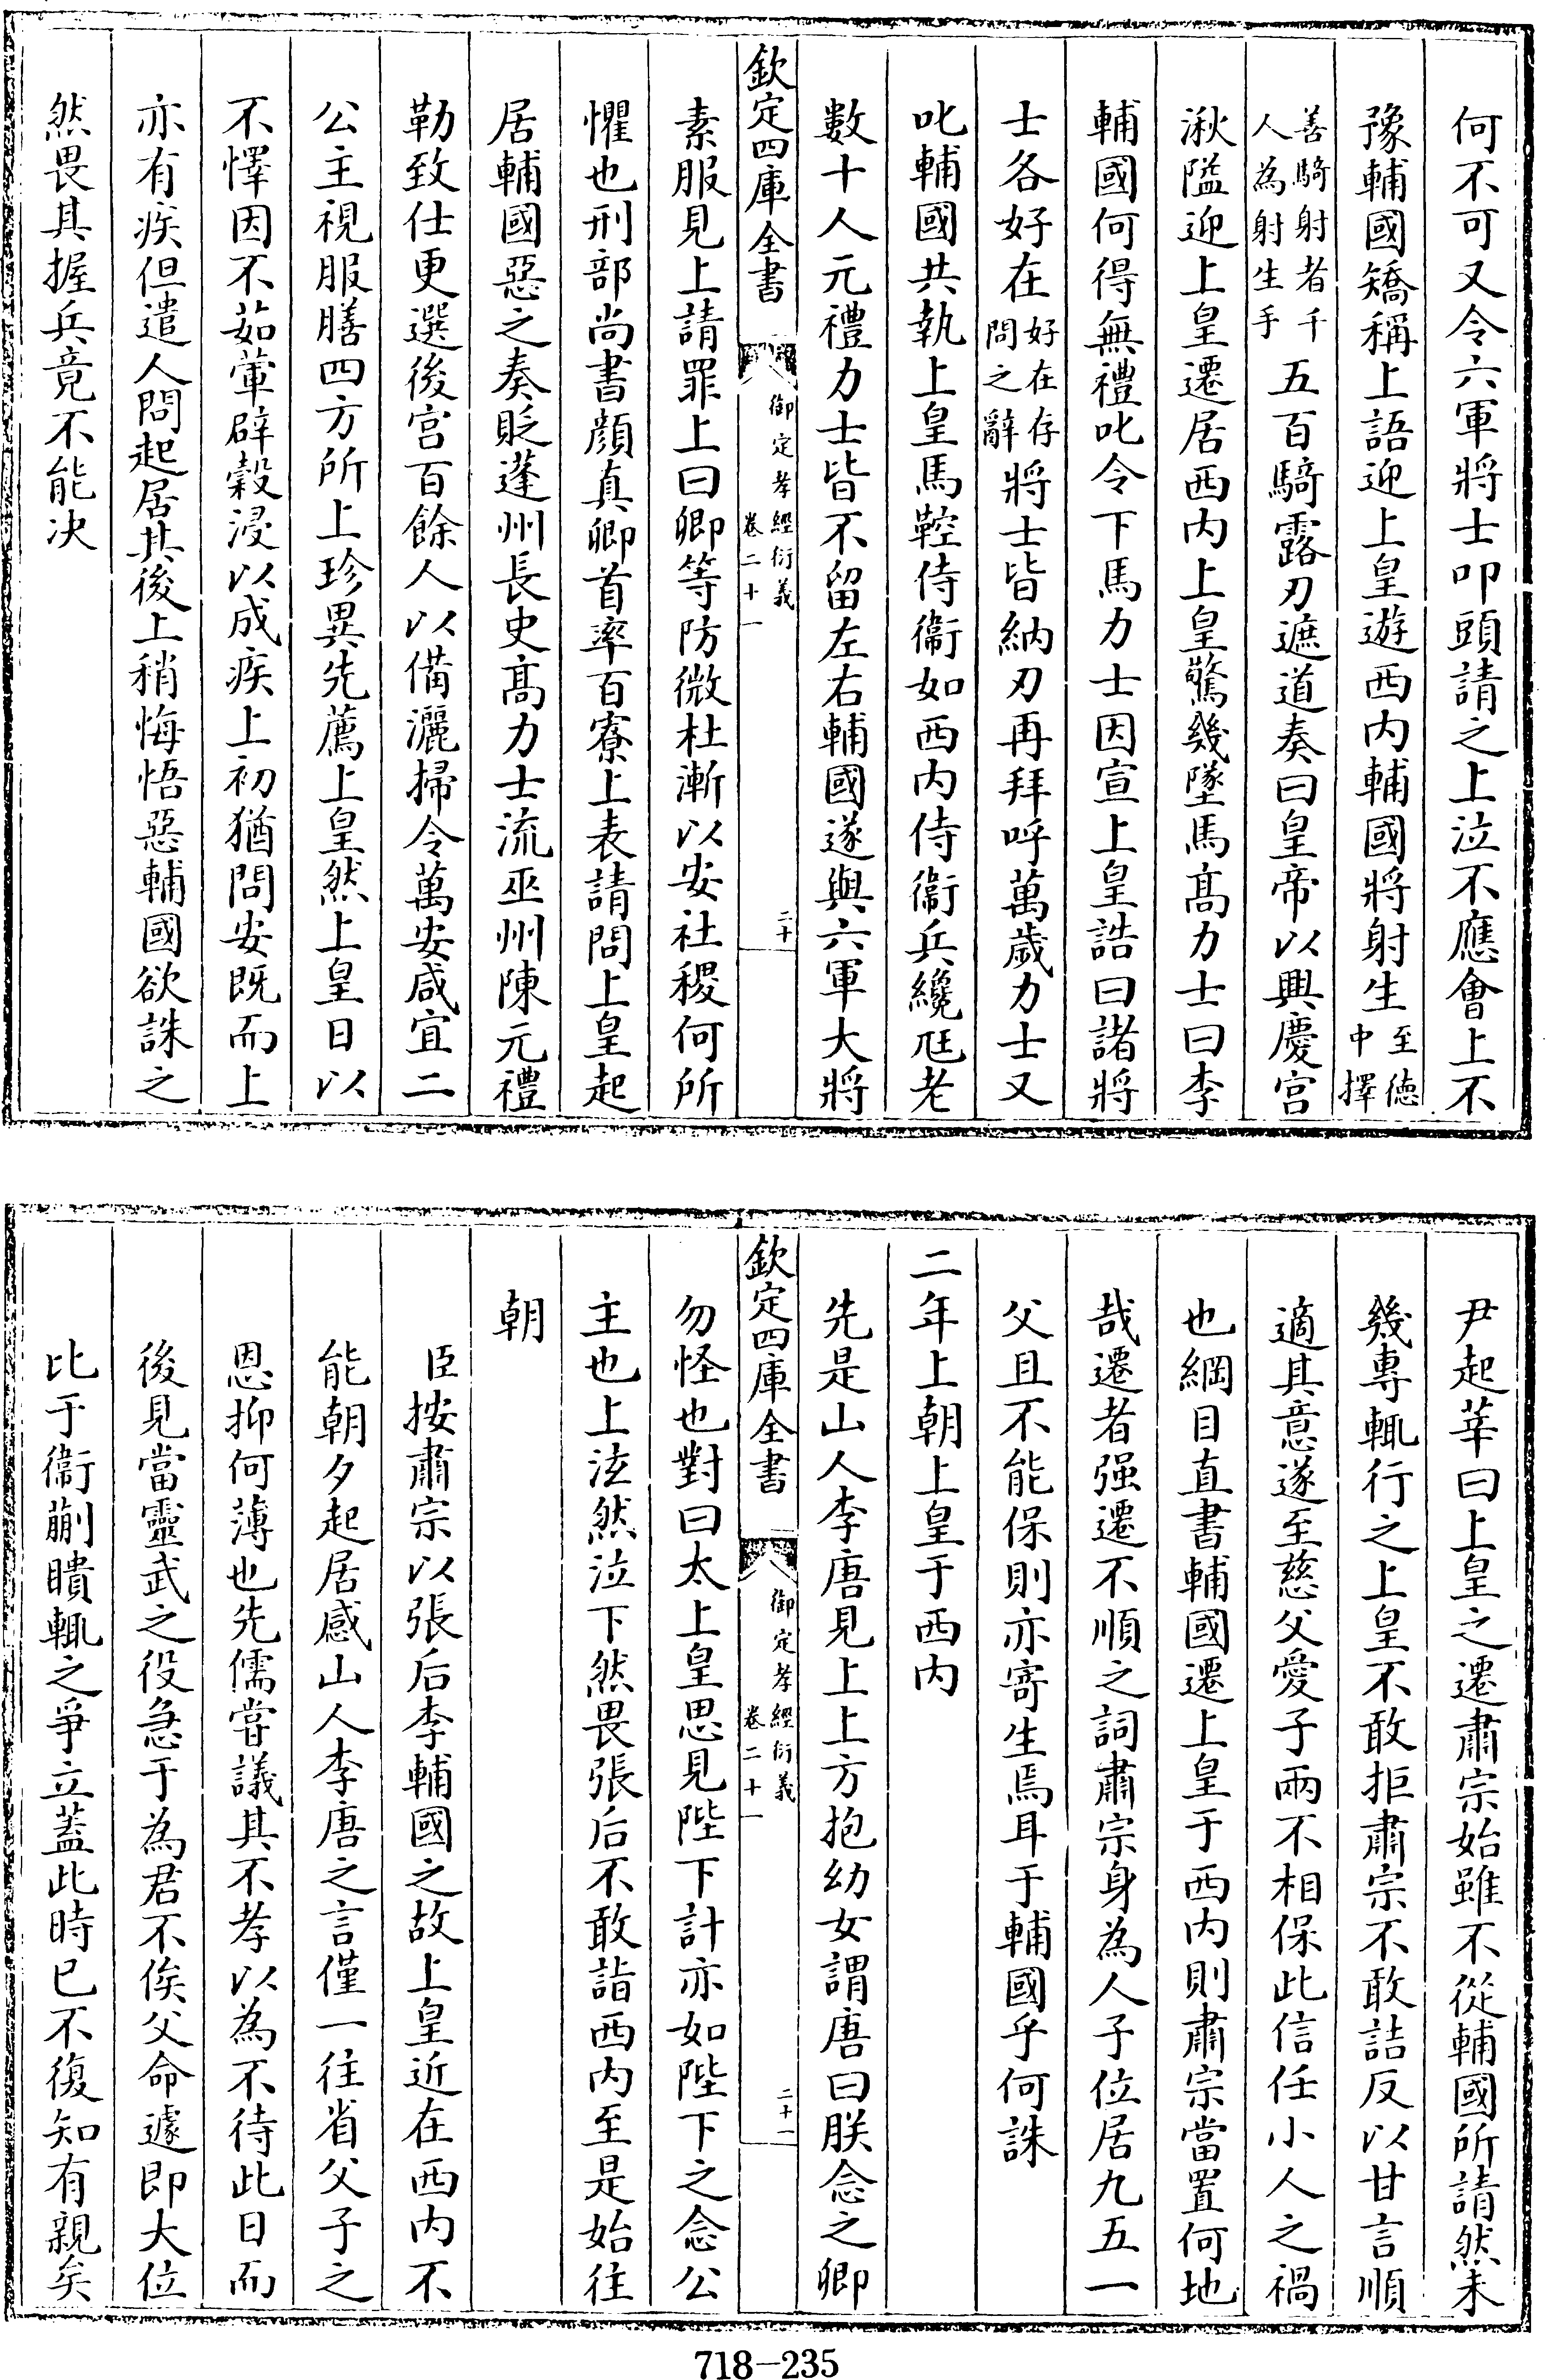 何不可又令六軍將士叩頭請之上泣不應會上不
豫輔國矯稱上語迎上皇遊西内輔國將射生至德中擇
善騎射者千人為射生手五百騎露刃遮道奏曰皇帝以興慶宫
湫隘迎上皇遷居西内上皇驚幾墜馬髙力士曰李
輔國何得無禮叱令下馬力士因宣上皇誥曰諸將
士各好在好在存問之辭將士皆納刃再拜呼萬歲力士又
叱輔國共執上皇馬鞚侍衞如西内侍衞兵纔尫老
數十人元禮力士皆不留左右輔國遂與六軍大將
欽定四庫全書
御定孝經衍義
卷二十一
二十
素服見上請罪上曰卿等防微杜漸以安社稷何所
懼也刑部尚書顔真卿首率百寮上表請問上皇起
居輔國惡之奏貶蓬州長史髙力士流巫州陳元禮
勒致仕更選後宫百餘人以備灑掃令萬安咸宜二
公主視服膳四方所上珍異先薦上皇然上皇日以
不懌因不茹葷辟榖浸以成疾上初猶問安既而上
亦有疾但遣人問起居其後上稍悔悟惡輔國欲誅之
然畏其握兵竟不能决
尹起莘曰上皇之遷肅宗始雖不從輔國所請然未
幾專輒行之上皇不敢拒肅宗不敢詰反以甘言順
適其意遂至慈父愛子兩不相保此信任小人之禍
也綱目直書輔國遷上皇于西内則肅宗當置何地
哉遷者强遷不順之詞肅宗身為人子位居九五一
父且不能保則亦寄生焉耳于輔國乎何誅
二年上朝上皇于西内
先是山人李唐見上上方抱幼女謂唐曰朕念之卿
欽定四庫全書
御定孝經衍義
卷二十一
二十一
勿怪也對曰太上皇思見陛下計亦如陛下之念公
主也上泫然泣下然畏張后不敢詣西内至是始往
朝
臣按肅宗以張后李輔國之故上皇近在西内不
能朝夕起居感山人李唐之言僅一往省父子之
恩抑何薄也先儒嘗議其不孝以為不待此日而
後見當靈武之役急于為君不俟父命遽即大位
比于衞蒯聵輒之爭立蓋此時已不復知有親矣
718-235